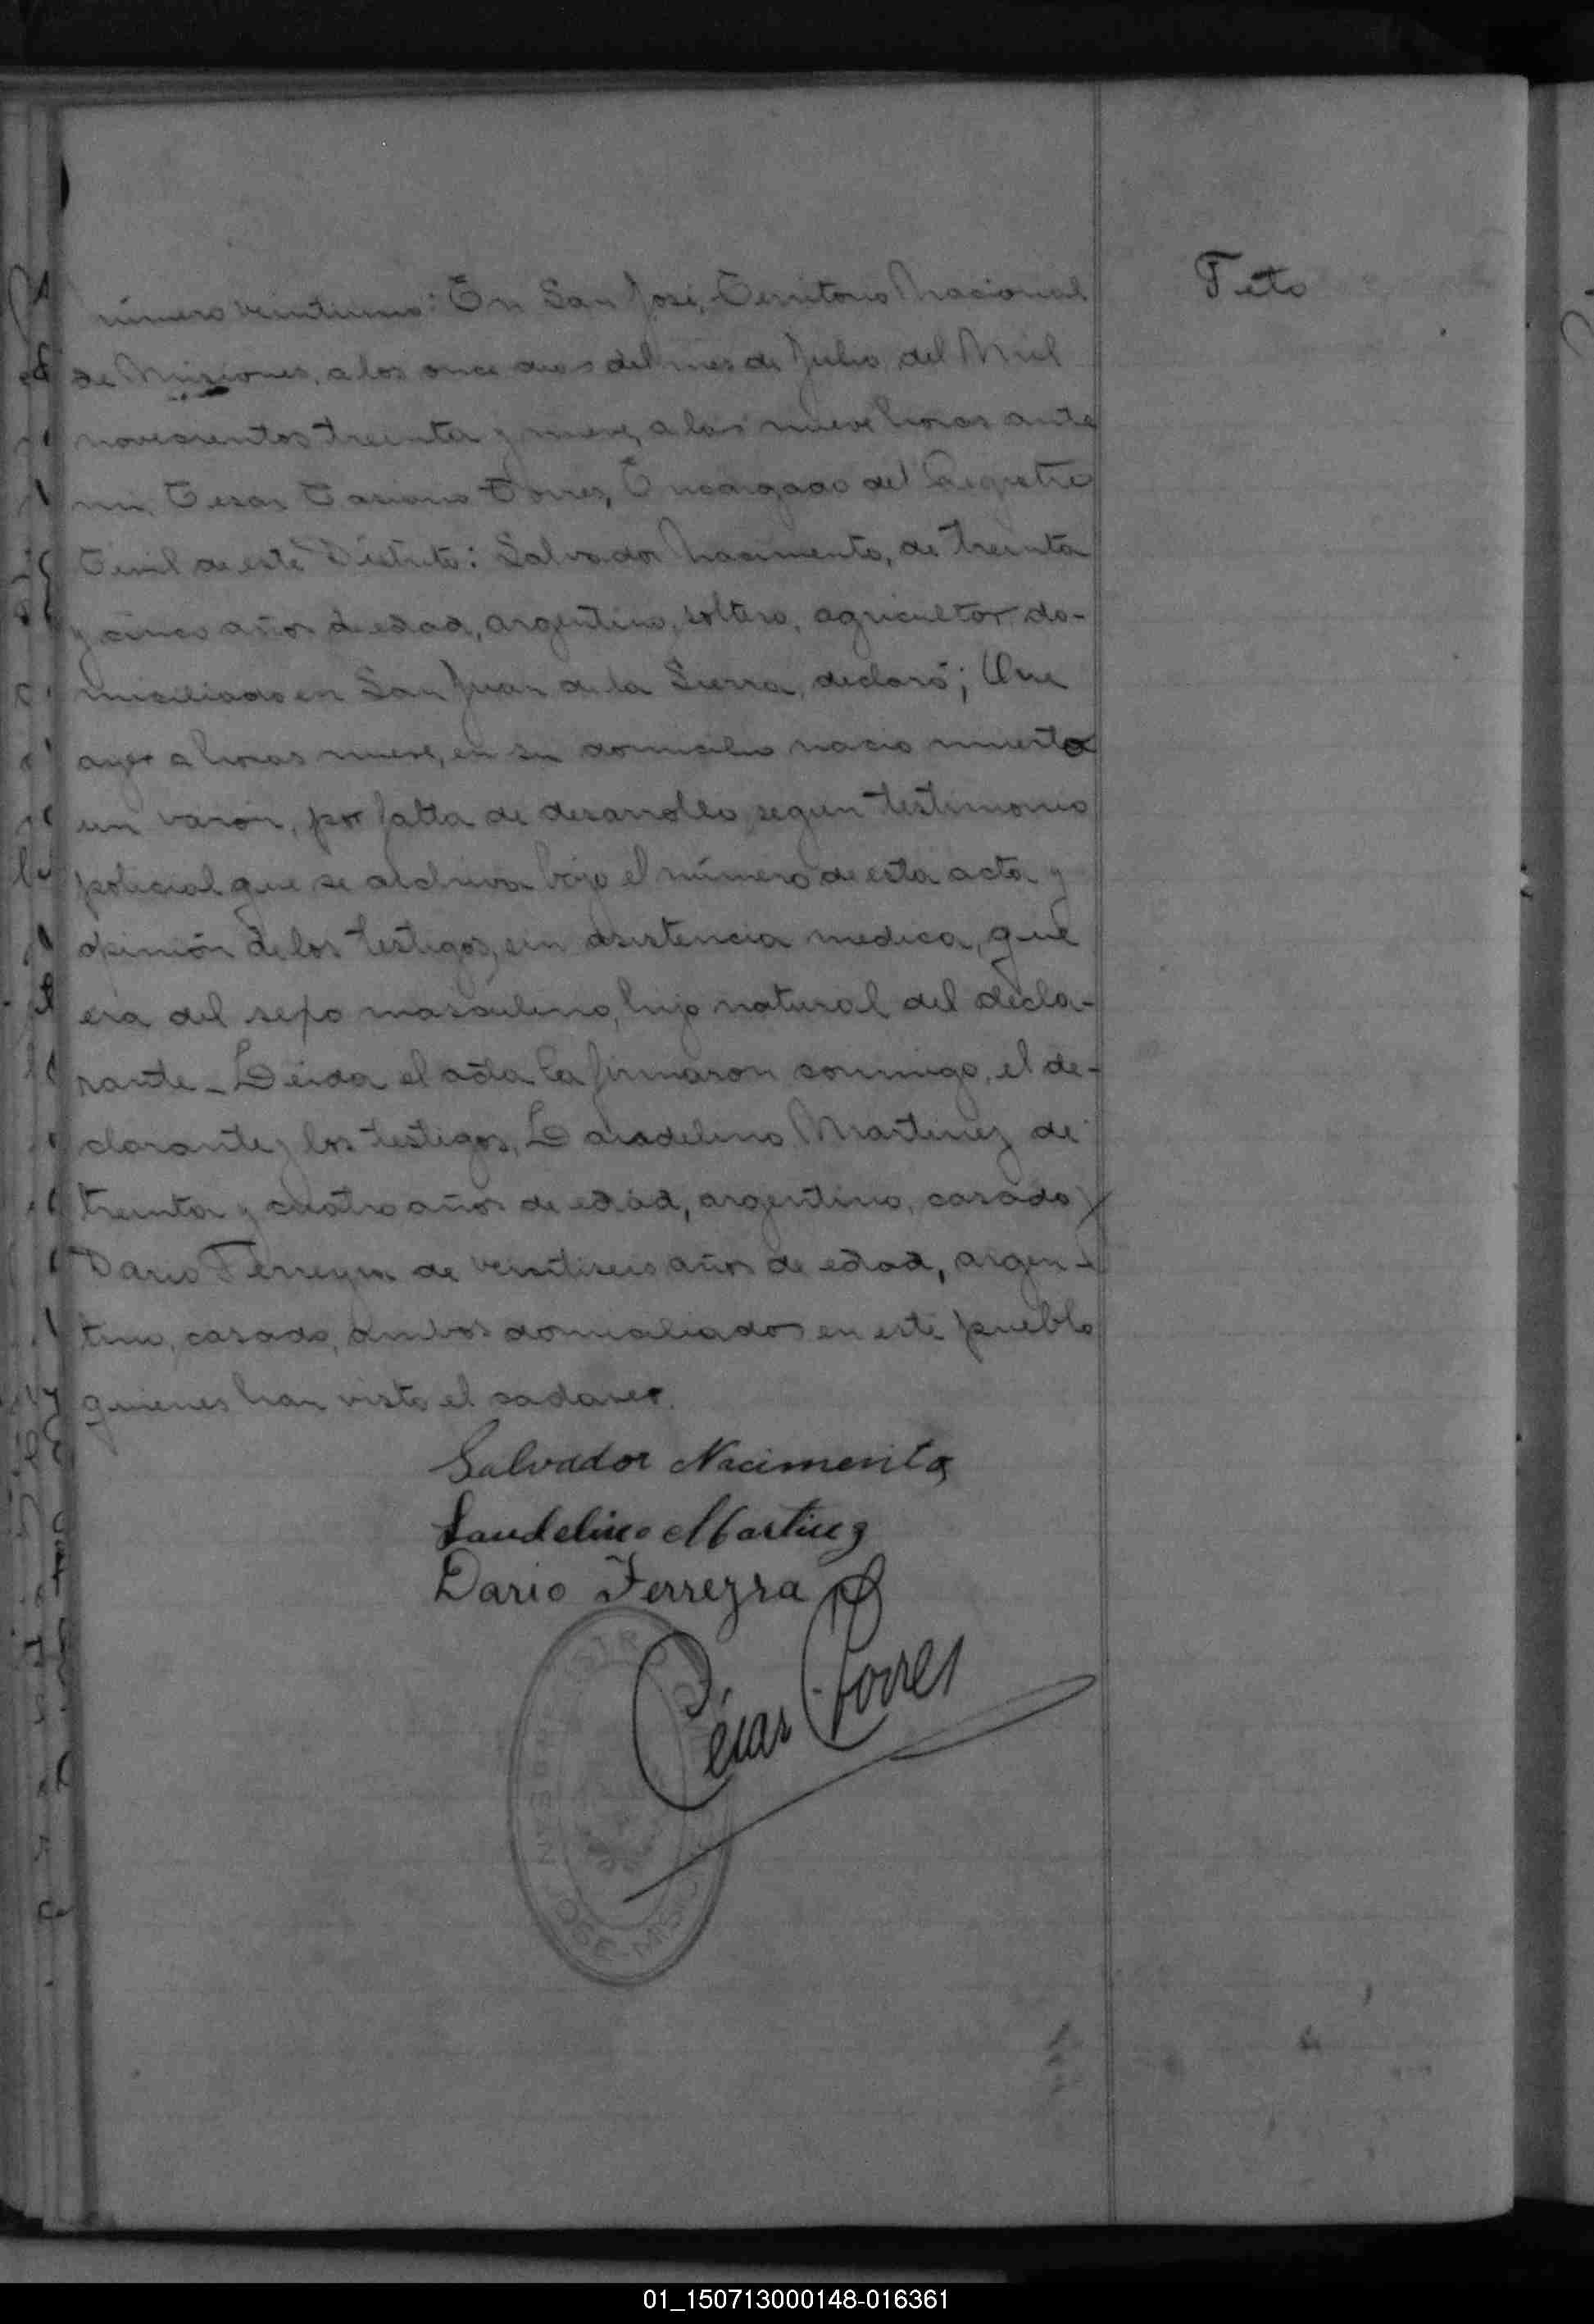 Feto
número veintiuno: En San José, Territorio Nacional
de Misiones, a los once dias del mes de Julio del Mil
novecientos treinta y nueve, a las nueve horas ante
mi, Cesar Torres, Encargado del Registro
Civil de este Distrito: Salvador Nacimento, de treinta
y cinco años de edad, argentino, soltero, agricultor do-
miciliado en San Juan de la Sierra, declaró; Que
ayer a horas nueve, en su domicilio nacio muerto
un varón, por falta de desarrollo, segun testimonio
policial que se archiva bajo el número de esta acta y
opinión de los testigos, sin asistencia medica, que
era del sexo masculino, hijo natural del decla-
rante_ Leida el acta la firmaron conmigo, el de-
clarante y los testigos, Martinez de
treinta y cuatro años de edad, argentino, casado y
Dario Ferreyra de veintiseis años de edad, argen-
tino, casado, ambos domiciliados en este pueblo
quienes han visto el cadaver.
Salvador Nacimento
Laudelino Martinez
Dario Ferreyra
César Torres
SAN JOSE MISIONES
01_150713000148-016361